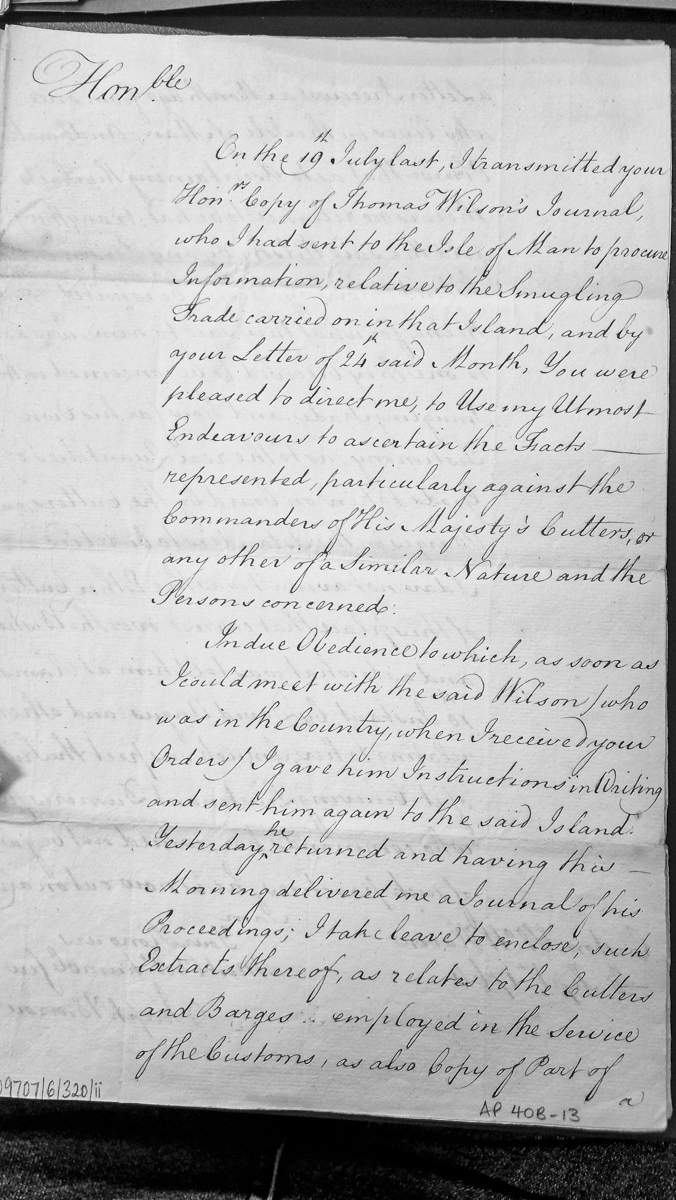 Hon.ble
On the 19th July last, I transmitted your
Hon.rs Copy of Thomas Wilson's Journal,
who I had sent to the Isle of Man to procure
Information, relative to the Smugling
Trade carried on in that Island, and by
your Letter of 24th said Month, You were
pleased to direct me, to Use my Utmost
Endeavours to ascertain the Facts —
represented, particularly against the
Commanders of His Majesty's Cutters, or
any other of a Similar Nature and the
Persons concerned.
In due Obedience to which, as soon as
I could meet with the said Wilson / who
was in the Country, when I received your
Orders / I gave him Instructions in Writing
and sent him again to the said Island.
Yesterday he returned and having this —
Morning delivered me a Journal of his
Proceedings; I take leave to enclose, such
Extracts thereof, as relates to the Cutters
and Barges .. employed in the Service
of the Customs, as also Copy of Part of
a
09707/6/320/ii
AP 40B-13